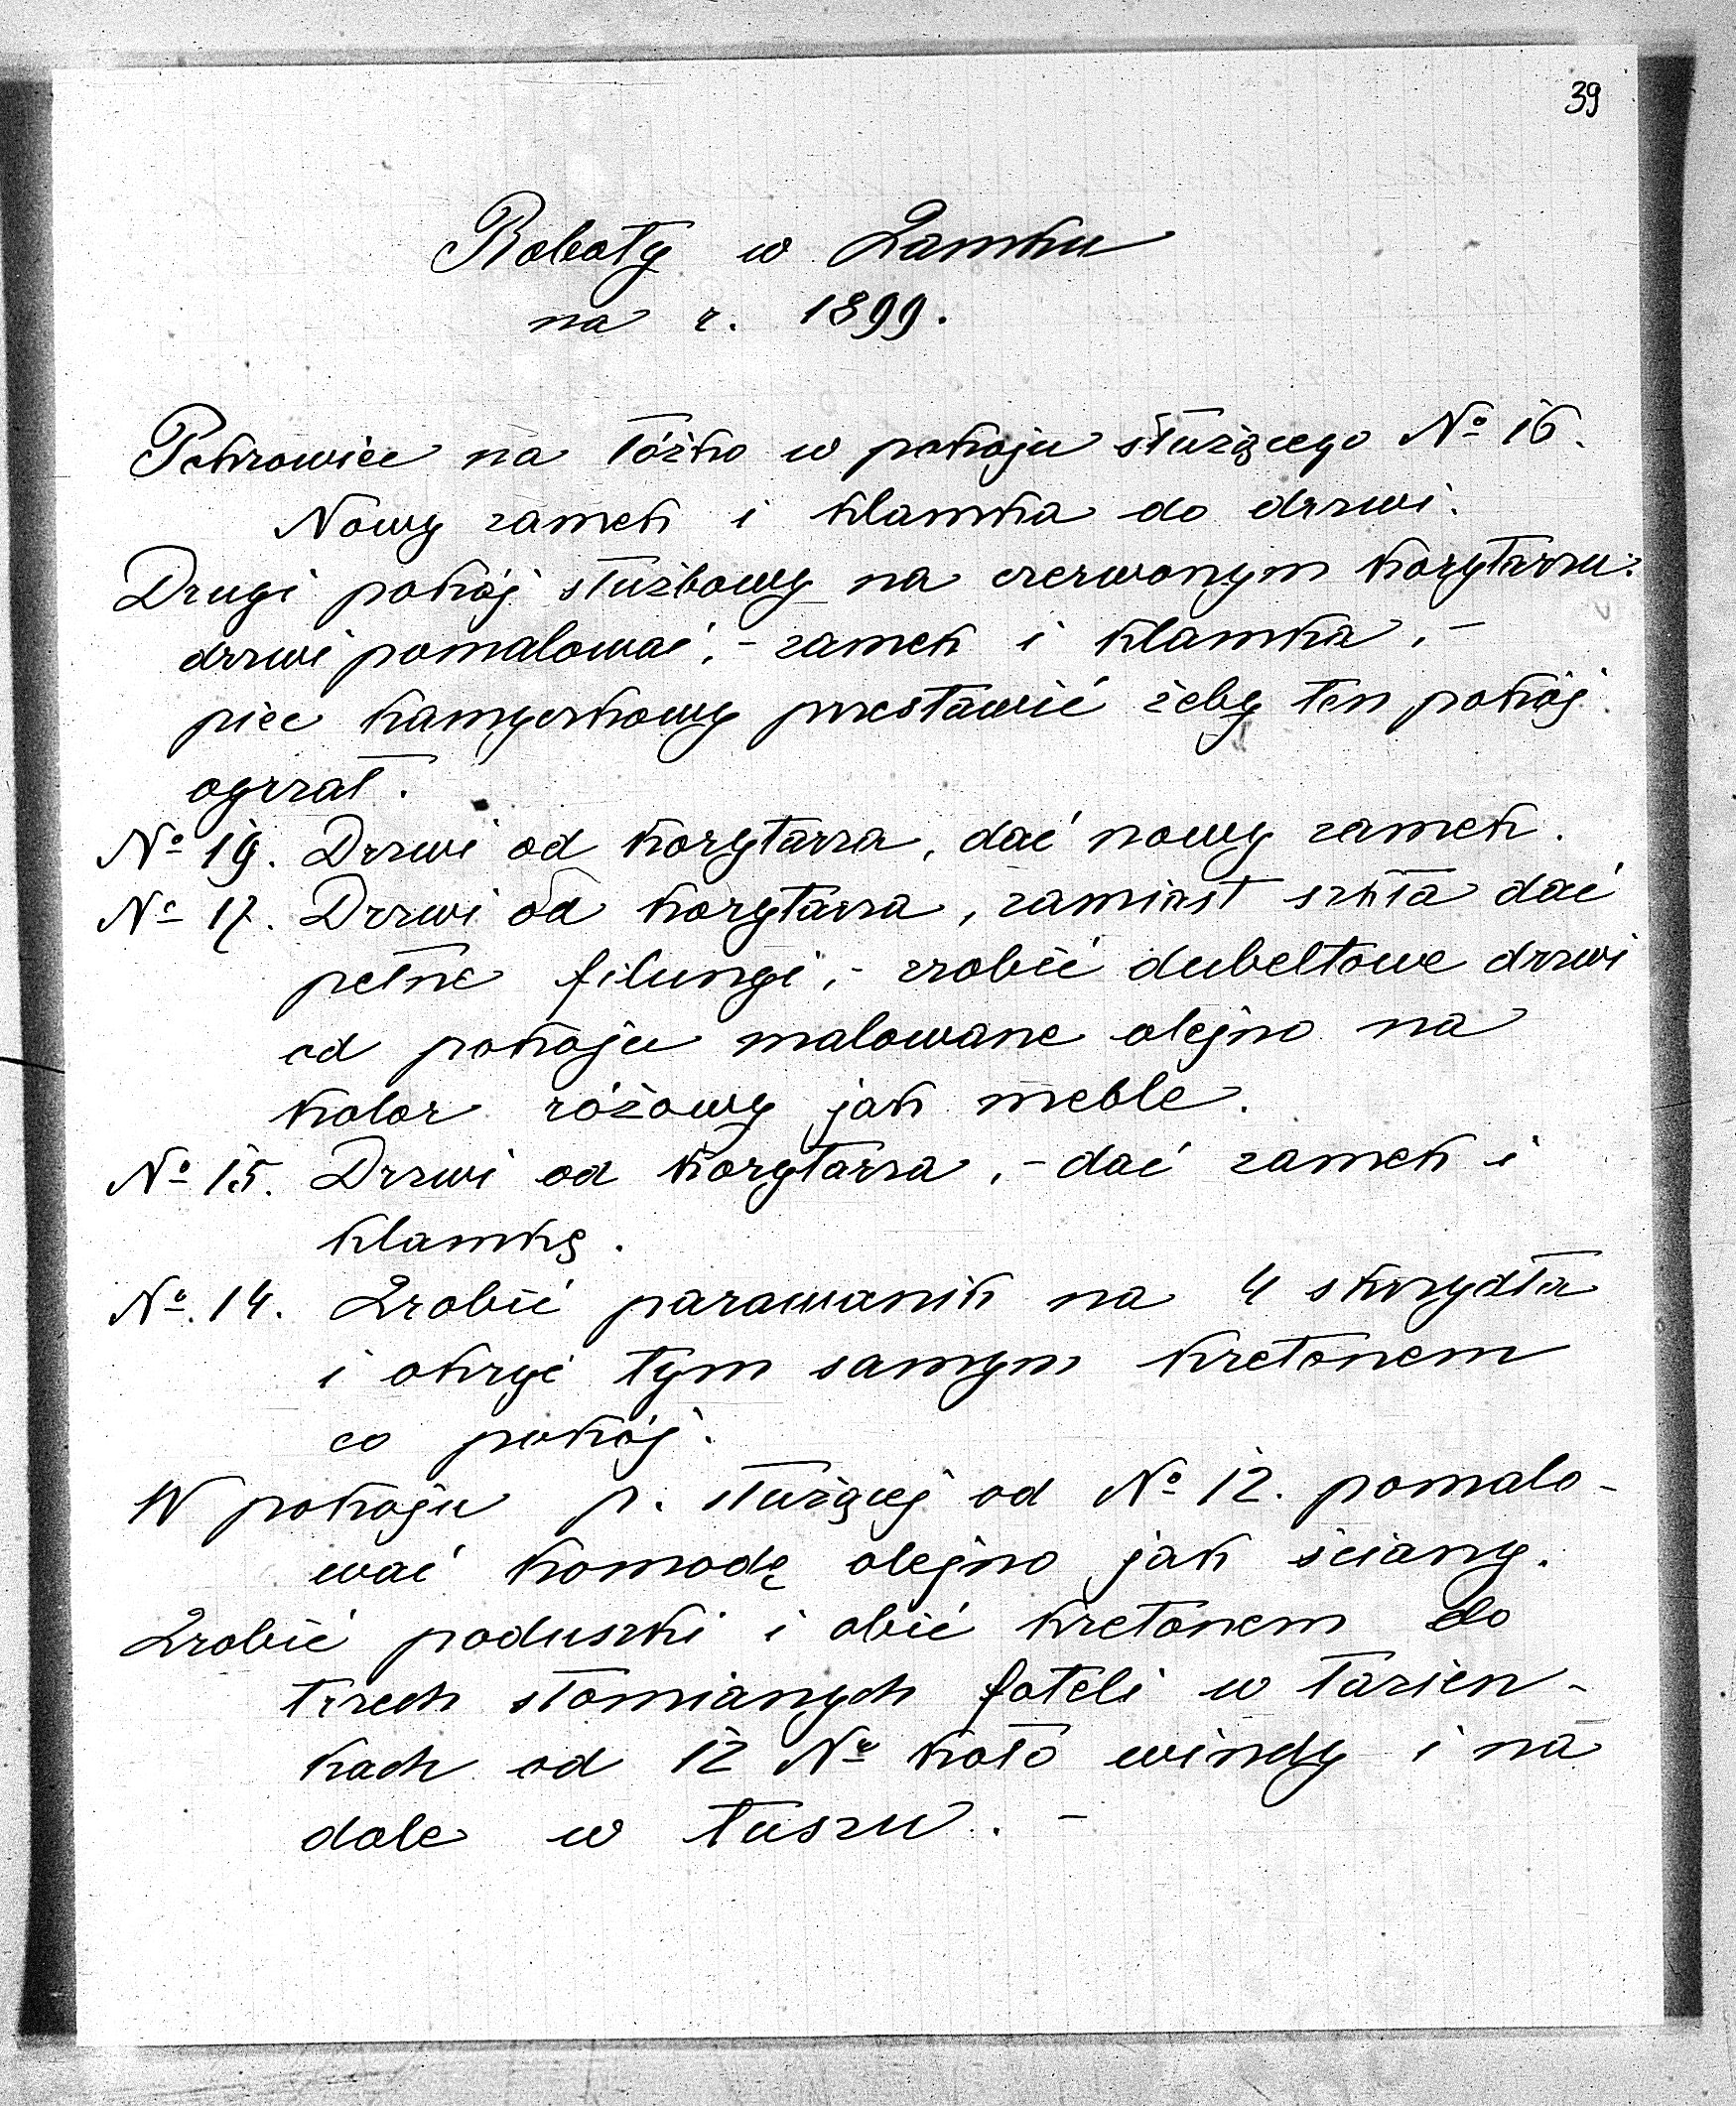 39
Roboty w Zamku
na r. 1899.
Pokrowiec na łóżko w pokoju służącego No 16.
Nowy zamek i klamka do drzwi.
Drugi pokój służbowy na czerwonym korytarzu:
drzwi pomalować, - zamek i klamka, -
piec kamyczkowy przestawić żeby ten pokój
ogrzał.
No 19. Drzwi od korytarza, dać nowy zamek.
No 17. Drzwi od korytarza, zamiast szkła dać
pełne filungi, - zrobić dubeltowe drzwi
od pokoju malowane olejno na
kolor różowy jak meble.
No 15. Drzwi od korytarza, - dać zamek i
klamkę.
No. 14. Zrobić parawanik na 4 skrzydła
i okryć tym samym kretonem
co pokój.
W pokoju p. służącej od No 12. pomalo-
wać komodę olejno jak ściany.
Zrobić poduszki i obić kretonem do
trzech słomianych foteli w łazien-
kach od 12 No koło windy i na
dole w tuszu. -